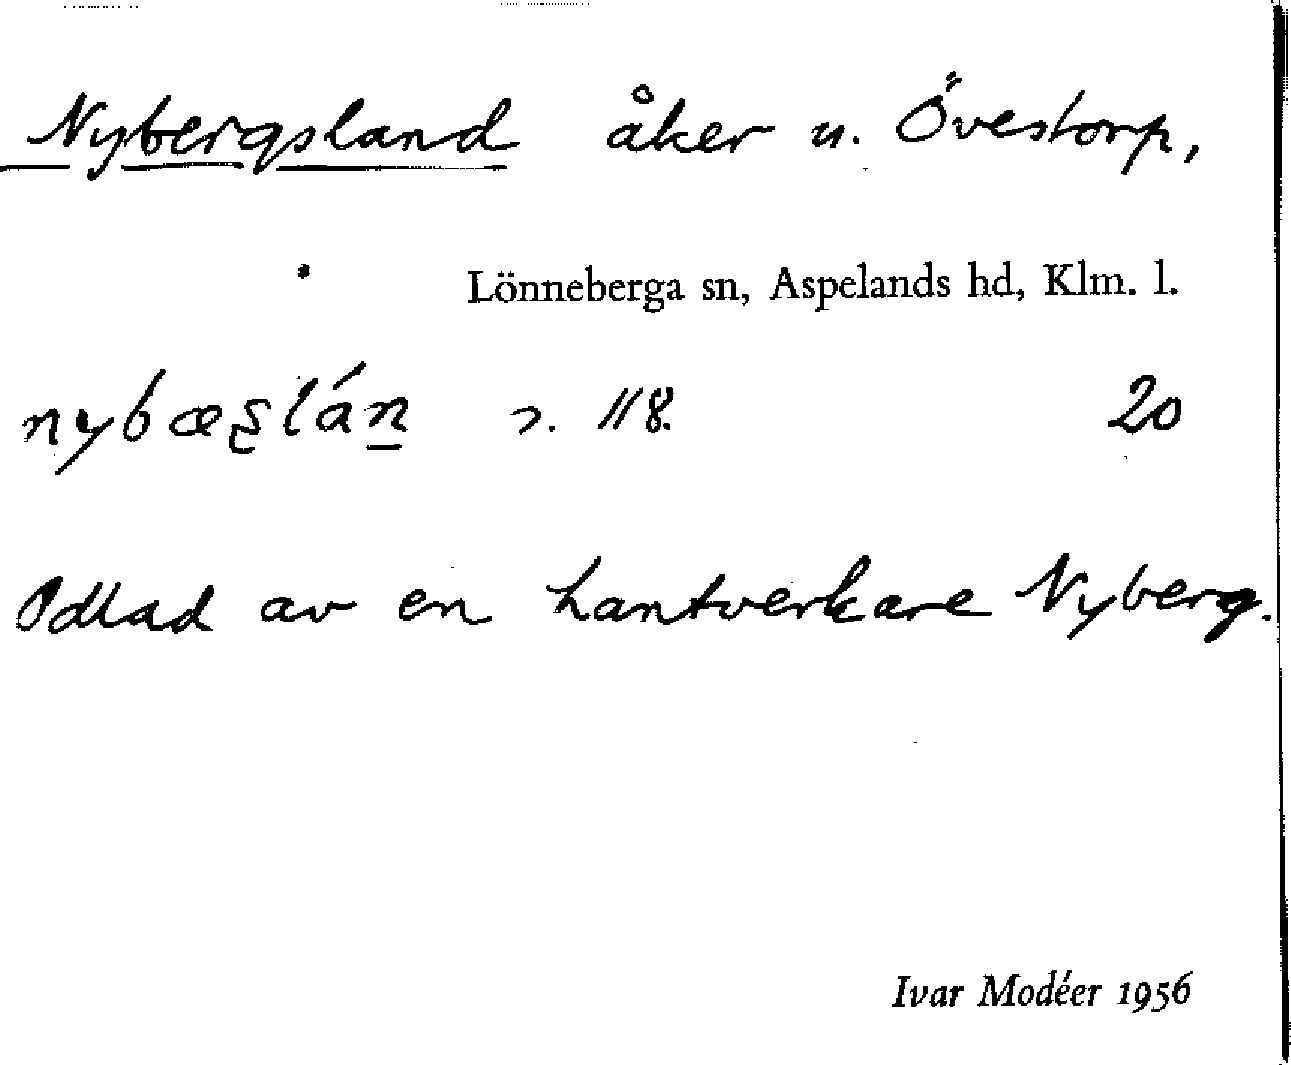 Nybergsland åker u. Övestorp,
Lönneberga sn, Aspelands hd, Klm. l.
nybæʂlán̲ 118. 20
Odlad av en hantverkare Nyberg.
Ivar Modéer 1956